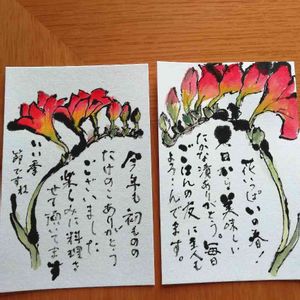 花いっぱいの春!
今日から美味しい
たかな漬ありがとう。毎日
ごはんの友に主人も
よろこんでます
今年も初ものの
たけのこありがとう
ございました
楽しみに料理を
させて頂いてます
いい季
節ですね